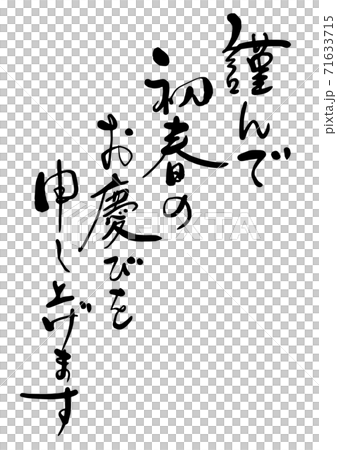 謹んで
初春の
お慶びを
申し上げます
pixta.jp - 71633715
PIXTA